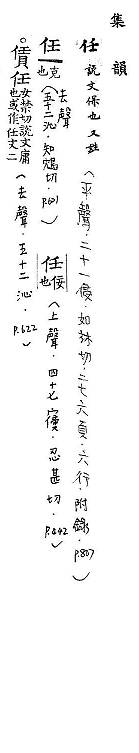 集韻
任 說文保也又姓(平聲．二十一侵．如林切．二七六頁．六行．附錄．P.807)
任 克也(去聲．五十二沁．知鴆切．P.621)
任 佞也(上聲．四十七寑．忍甚切．P.642)
○賃任 女禁切說文庸也或作任文二(去聲．五十二沁．P.622)